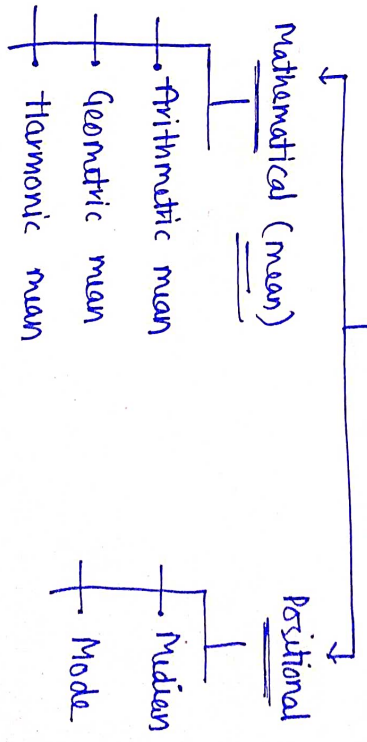 Mathematical (mean)
Arithmetic mean
Geometric mean
Harmonic mean
Positional
Median
Mode